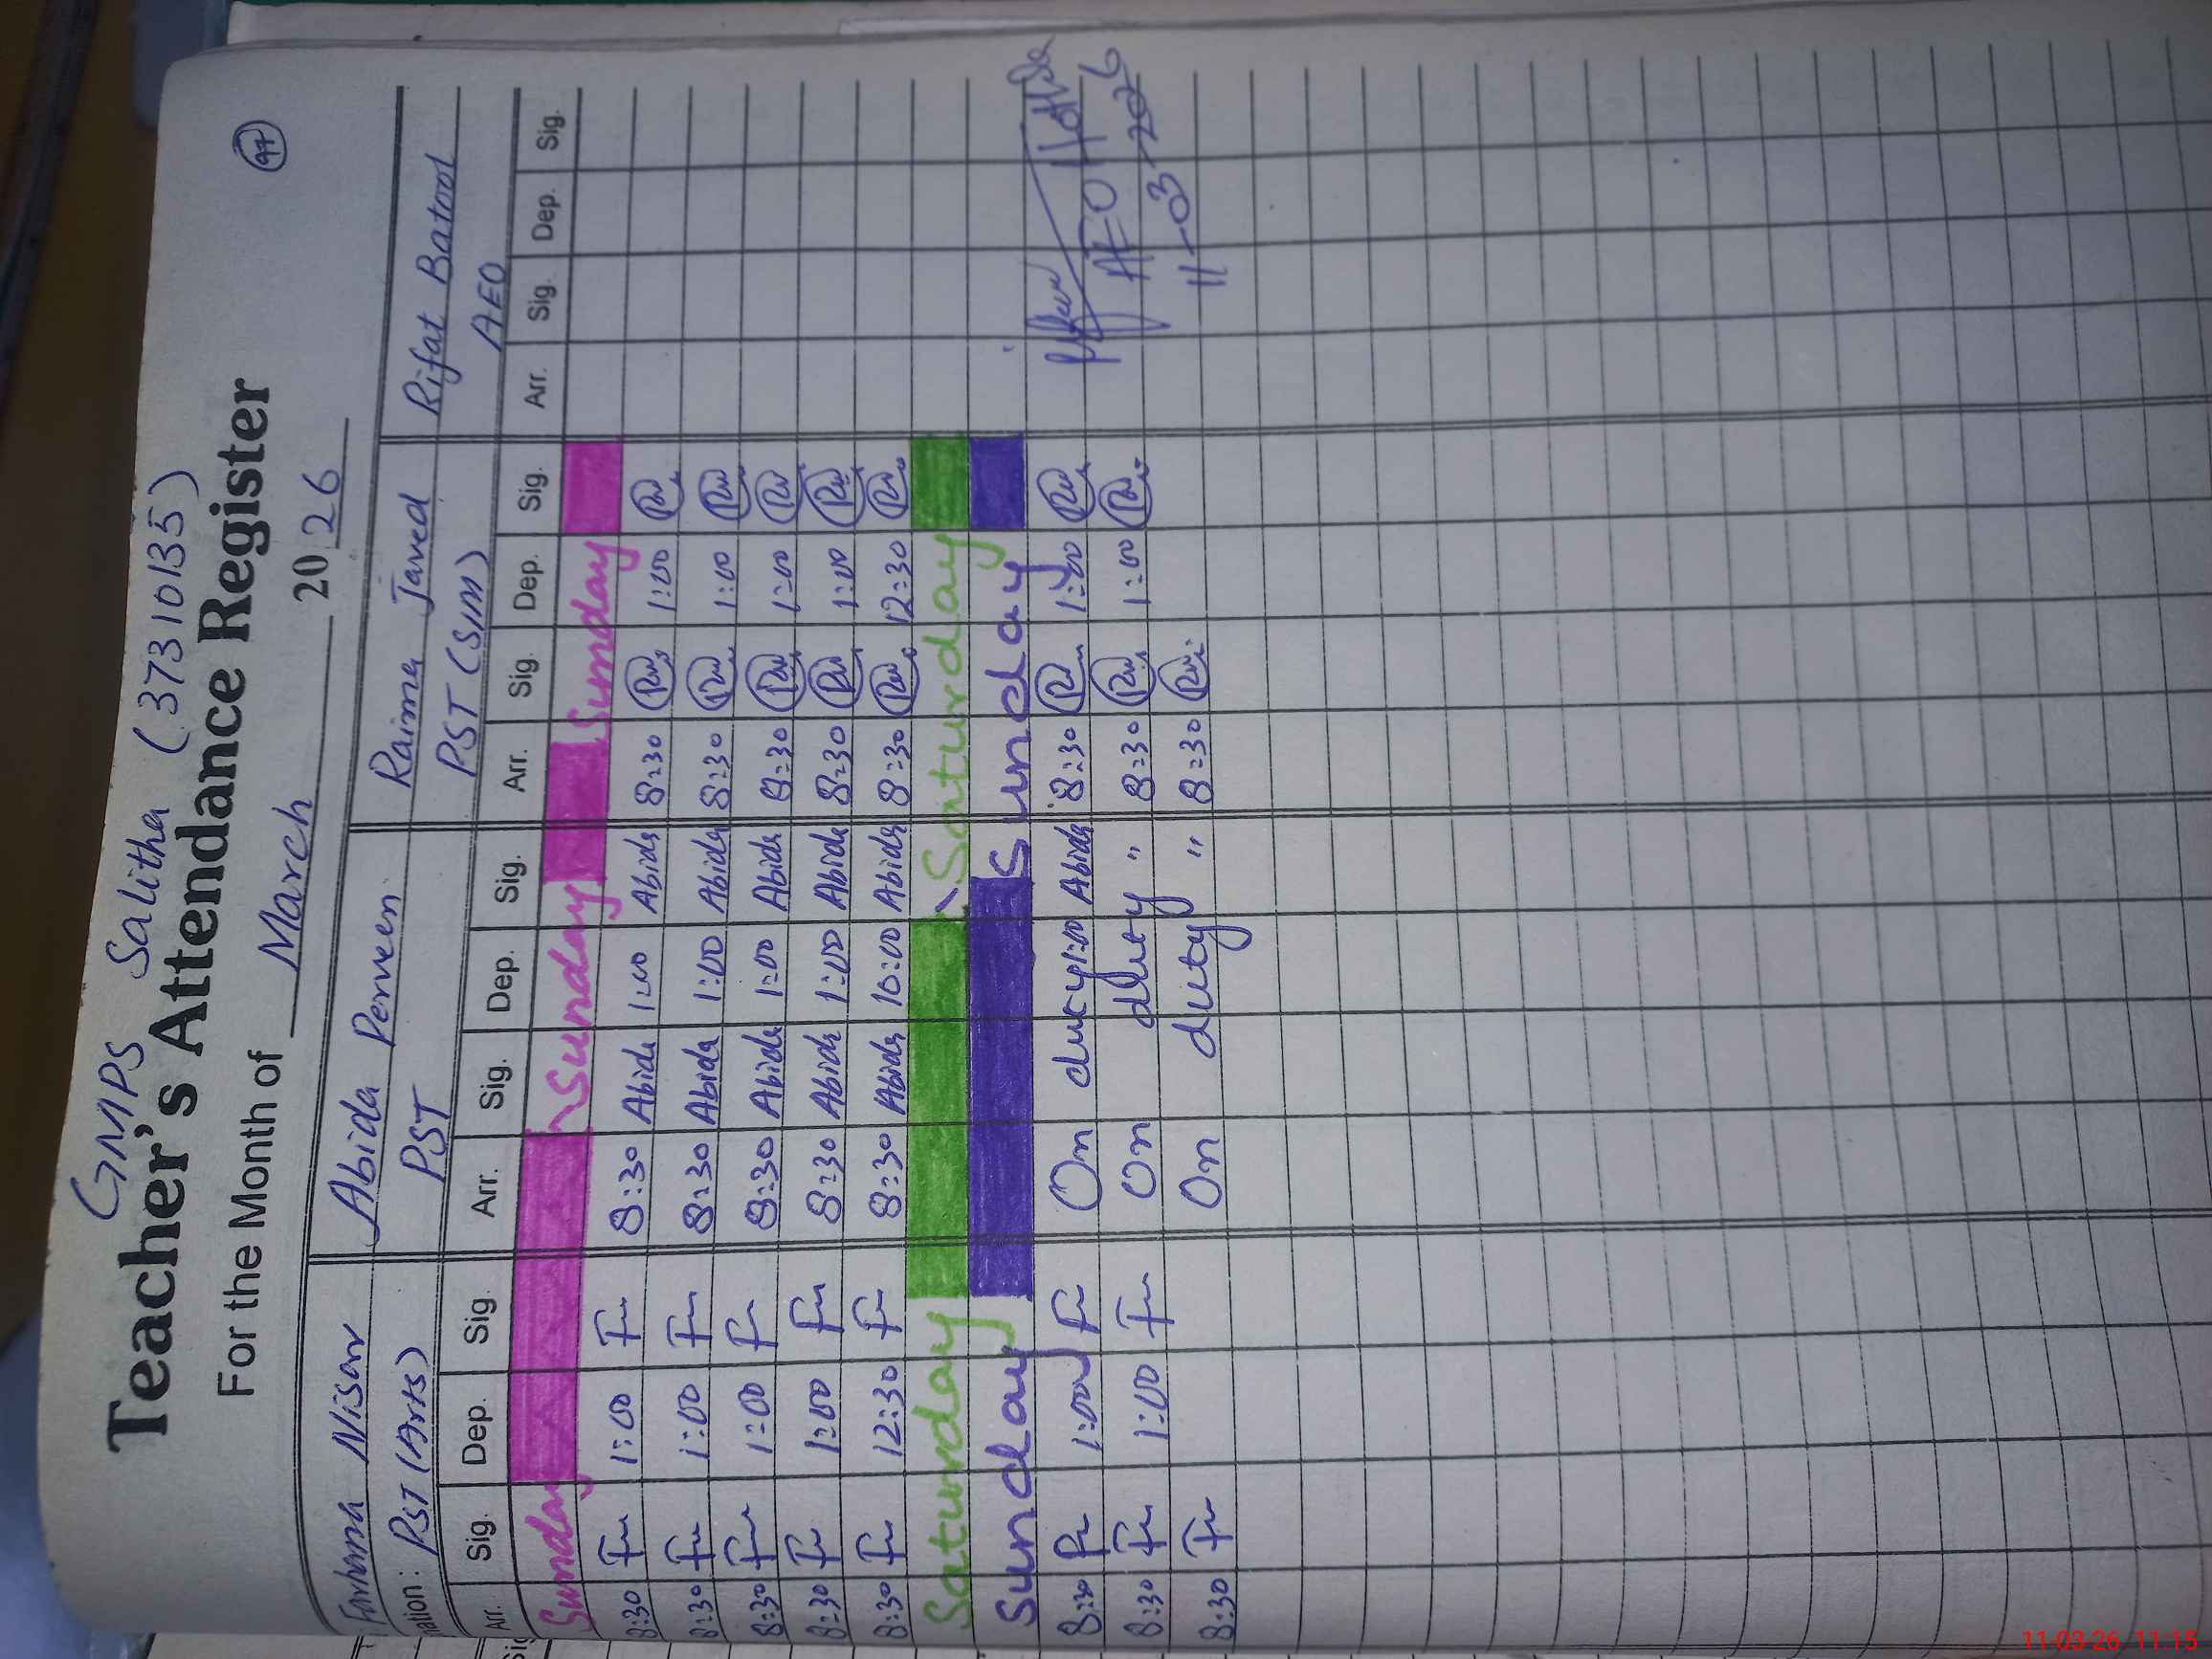 97
GMPS Salitha (37310135)
Teacher's Attendance Register
For the Month of March 2026
Farhana Nisar Abida Perveen Raima Javed Rifat Batool
nation: PST (Arts) PST PST (SIM) AEO
Arr. Sig. Dep. Sig. Arr. Sig. Dep. Sig. Arr. Sig. Dep. Sig. Arr. Sig. Dep. Sig.
Sunday Sunday Sunday
8:30 Fu 1:00 Fu 8:30 Abida 1:00 Abida 8:30 Ra 1:00 Ra
8:30 Fu 1:00 Fu 8:30 Abida 1:00 Abida 8:30 Ra 1:00 Ra
8:30 Fu 1:00 Fu 8:30 Abida 1:00 Abida 8:30 Ra 1:00 Ra
8:30 Fu 1:00 Fu 8:30 Abida 1:00 Abida 8:30 Ra 1:00 Ra
8:30 Fu 12:30 Fu 8:30 Abida 10:00 Abida 8:30 Ra 12:30 Ra
Saturday Saturday
Sunday Sunday
8:30 Fu 1:00 Fu On duty 1:00 Abida 8:30 Ra 1:00 Ra
8:30 Fu 1:00 Fu On duty " 8:30 Ra 1:00 Ra
8:30 Fu On duty " 8:30 Ra
AEO
11-03-2026
11-03-26 11:15